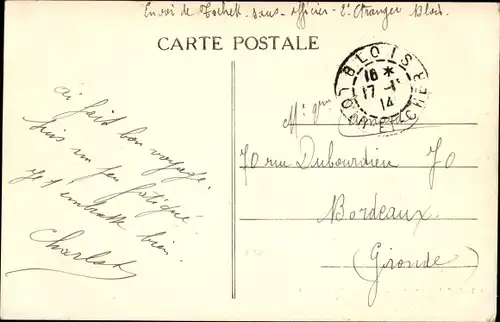 Envoi de Tochek - sous - officier - 2e Etranger Blois.
CARTE POSTALE
BLOIS
16 *
17 - 1
14
LOIR ET CHER
ai fait bon voyage.
suis un peu fatigué
et embrasse bien.
70 rue Dubourdieu 70
Bordeaux
(Gironde)
Charlot